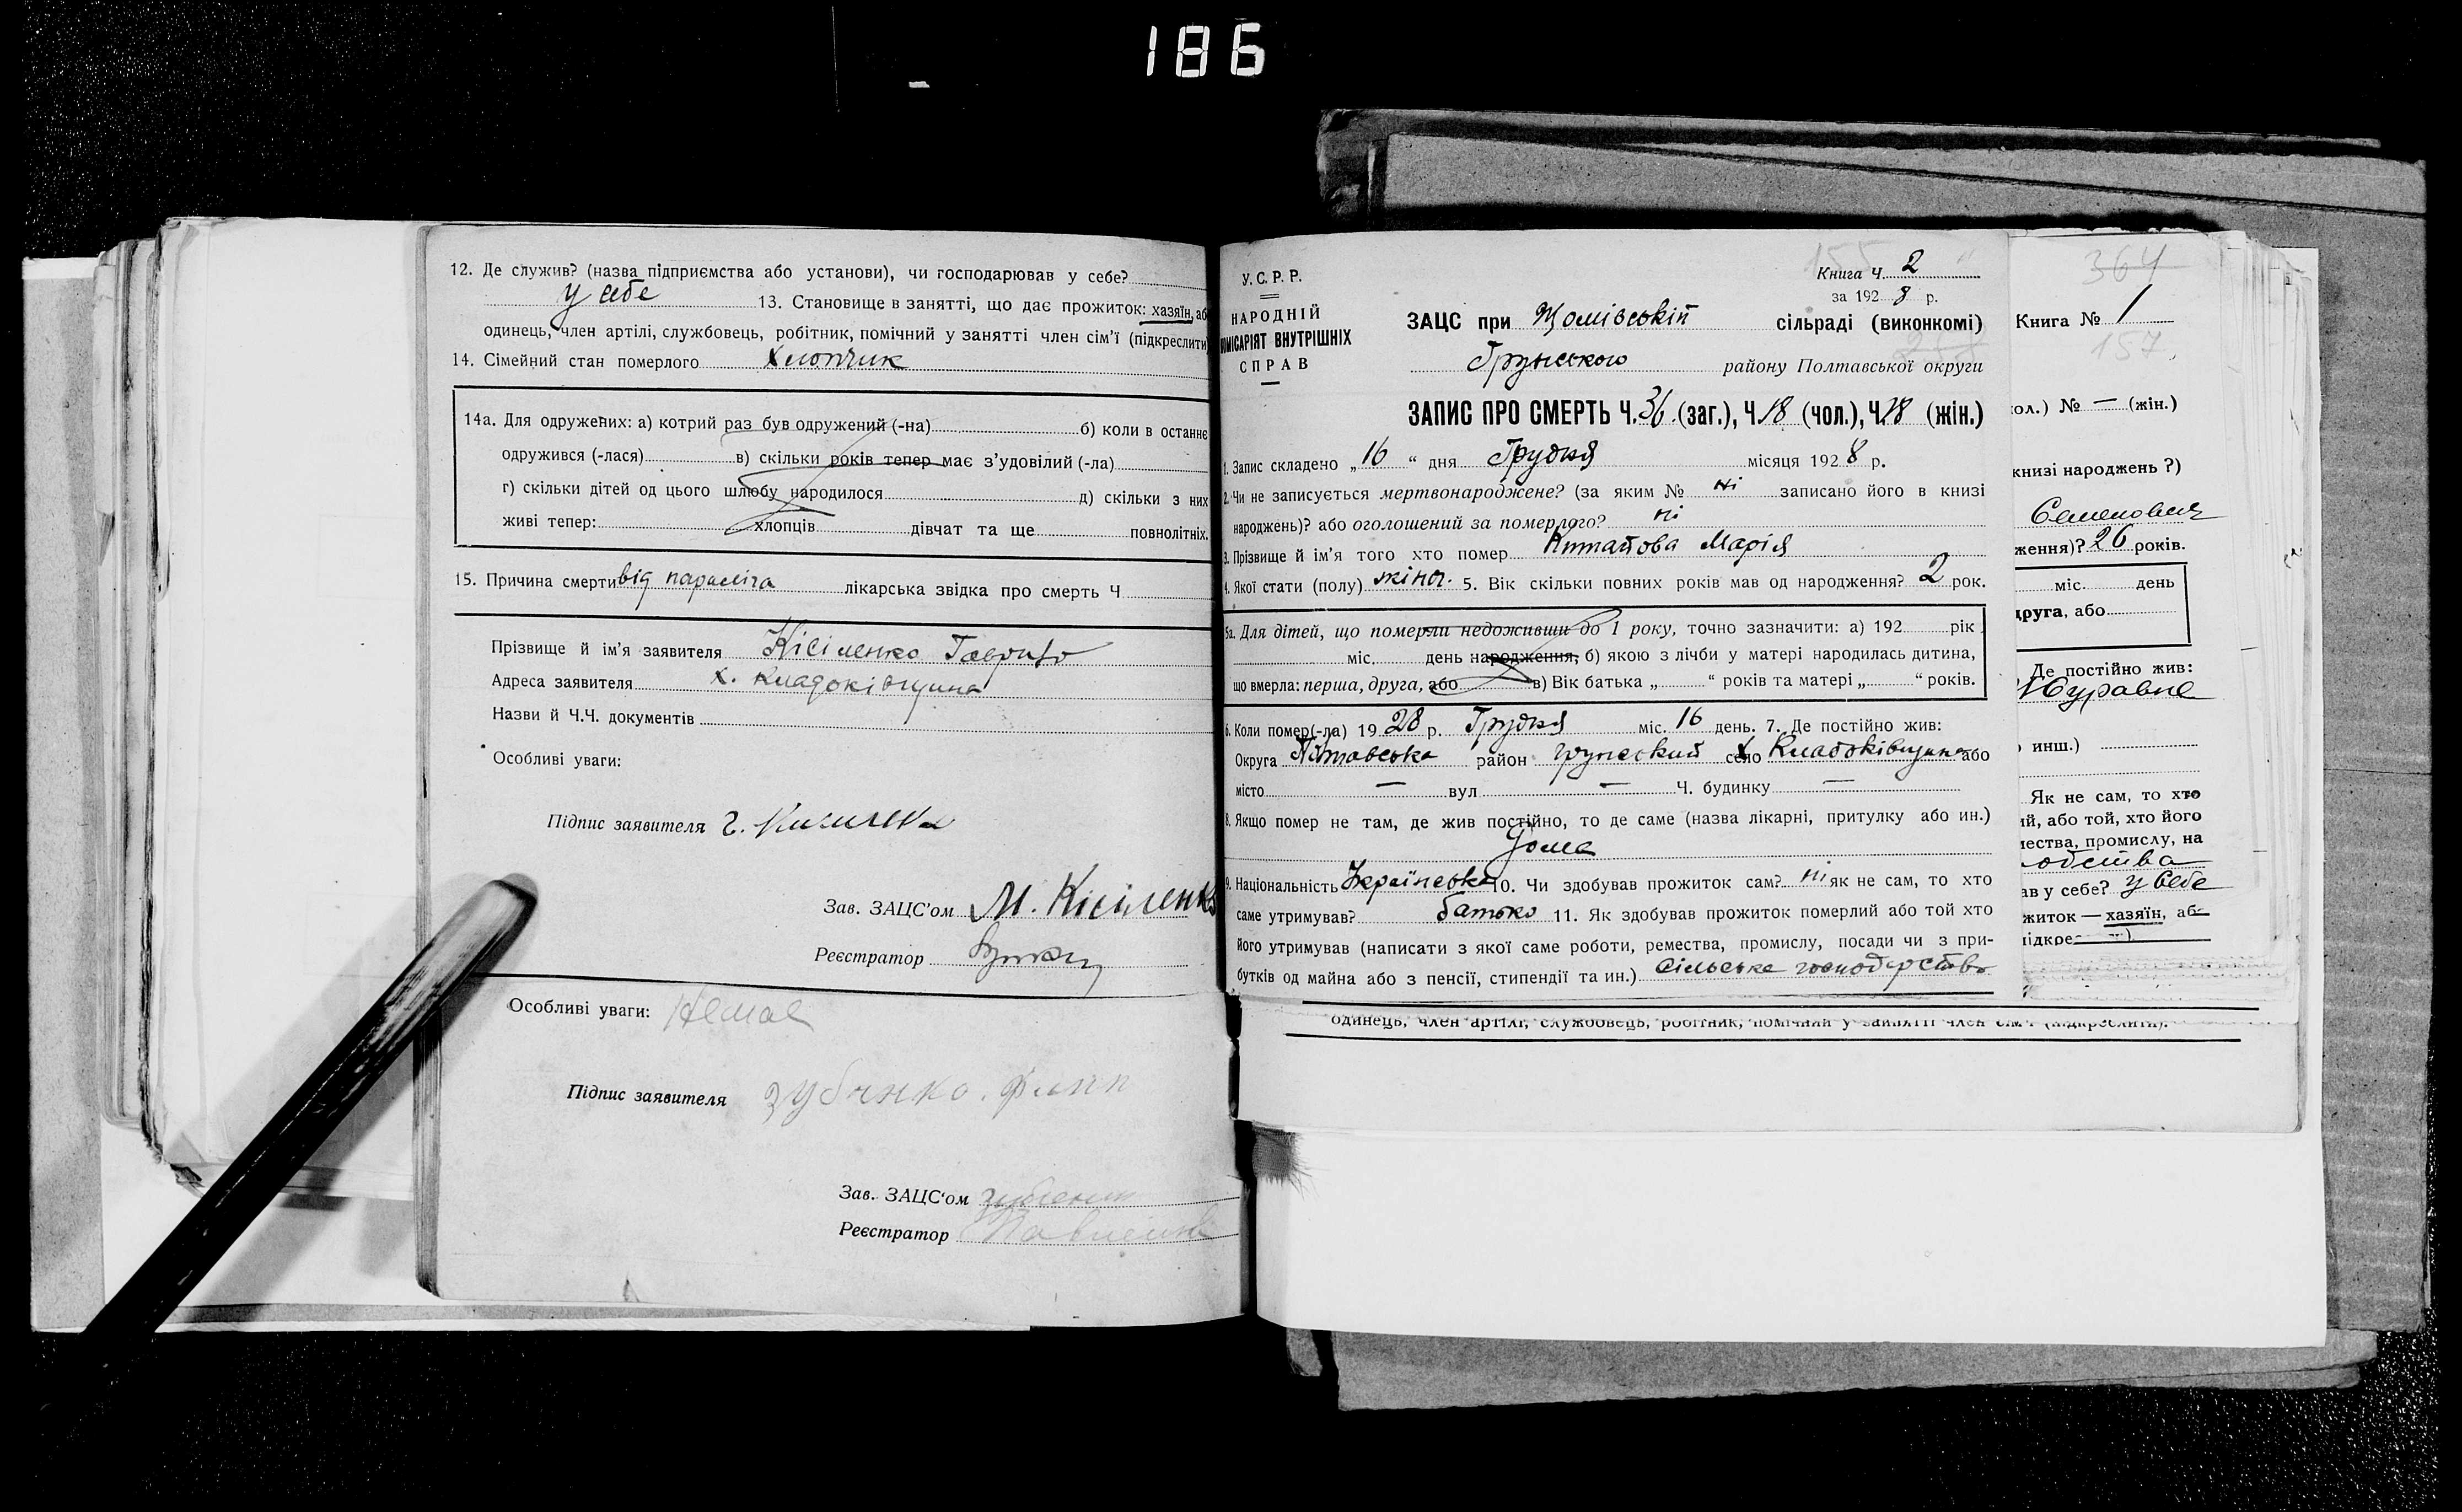 186
12. Де служив? (назва підприємства або установи), чи господарював у себе?
у себе 13. Становище в занятті, що дає прожиток: хазяїн, аб
одинець, член артілі, службовець, робітник, помічний у занятті член сім'ї (підкреслити
14. Сімейний стан померлого хлопчик
14а. Для одружених: а) котрий раз був одружений (-на) б) коли в останнє
одружився (-лася) в) скільки років тепер має з'удовілий (-ла)
г) скільки дітей од цього шлюбу народилося д) скільки з них
живі тепер: хлопців дівчат та ще повнолітніх.
15. Причина смерти від параліча лікарська звідка про смерть Ч
Прізвище й ім'я заявителя Кісіленко Гаврило
Адреса заявителя х. Кладоківщина
Назви й Ч.Ч. документів
Особливі уваги:
Підпис заявителя Г.
Зав. ЗАЦС'ом М. Кісіленко
Реєстратор
Особливі уваги: Немає
Підпис заявителя
Зав. ЗАЦС'ом
Реєстратор
У. С. Р. Р.
НАРОДНІЙ
ОМІСАРІЯТ ВНУТРІШНІХ
СПРАВ
155
Книга Ч. 2
за 1928 р.
ЗАЦС при сільраді (виконкомі)
Грунського району Полтавської округи
ЗАПИС ПРО СМЕРТЬ Ч. 36 (заг.), Ч. 18 (чол.), Ч. 18 (жін.)
1. Запис складено „16“ дня Грудня місяця 1928 р.
2. Чи не записується мертвонароджене? (за яким № ні записано його в книзі
народжень)? або оголошений за померлого? ні
3. Прізвище й ім'я того хто помер Китайова Марія
4. Якої стати (полу) жіноч. 5. Вік скільки повних років мав од народження? 2 рок.
5а. Для дітей, що померли недоживши до 1 року, точно зазначити: а) 192 рік
міс. день народження, б) якою з лічби у матері народилась дитина,
що вмерла: перша, друга, або в) Вік батька „ “ років та матері „ “ років.
6. Коли помер(-ла) 1928 р. Грудня міс. 16 день. 7. Де постійно жив:
Округа Полтавська район грунський село х Кладоківщина або
місто — вул — Ч. будинку —
8. Якщо помер не там, де жив постійно, то де саме (назва лікарні, притулку або ин.)
Дома
9. Національність Українська 10. Чи здобував прожиток сам? ні як не сам, то хто
саме утримував? батько 11. Як здобував прожиток померлий або той хто
його утримував (написати з якої саме роботи, ремества, промислу, посади чи з при-
бутків од майна або з пенсії, стипендії та ин.) сільське господарство
одинець, член артілі, службовець, робітник, помічний у занятті член сім'ї (підкреслити).
364
Книга № 1
157
ол.) № — (жін.)
книзі народжень?)
Семенович
ження)? 26 років.
міс. день
друга, або
Де постійно жив:
Журавне
инш.)
Як не сам, то хто
ий, або той, хто його
мества, промислу, на
ав у себе? у себе
житок — хазяїн, аб
ідкре